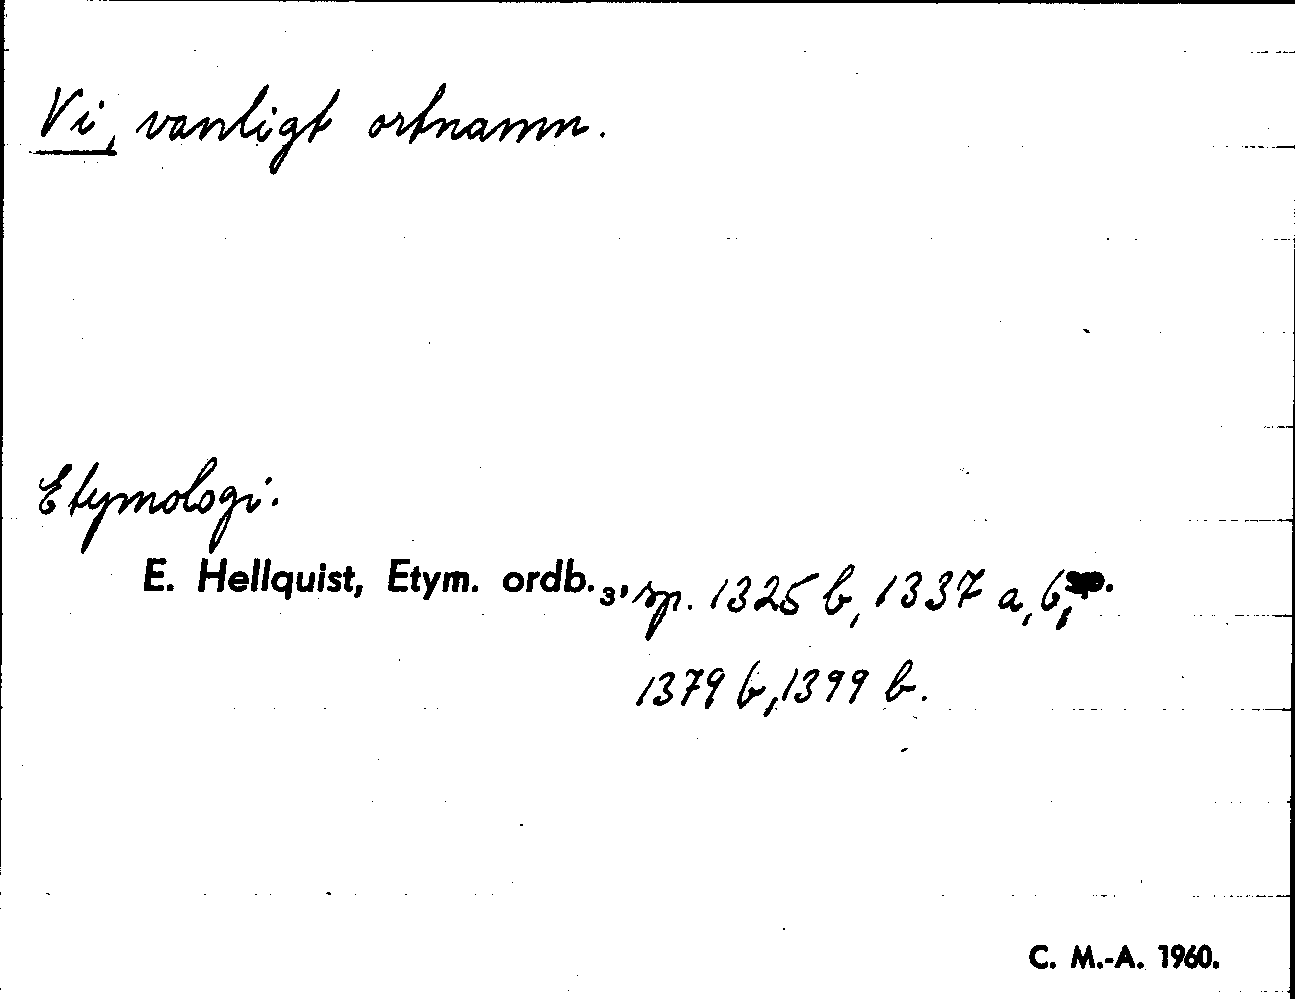 Vi, vanligt ortnamn.
Etymologi:
E. Hellquist, Etym. ordb.₃, sp. 1325 b, 1337 a, b,
1379 b, 1399 b.
C. M.-A. 1960.